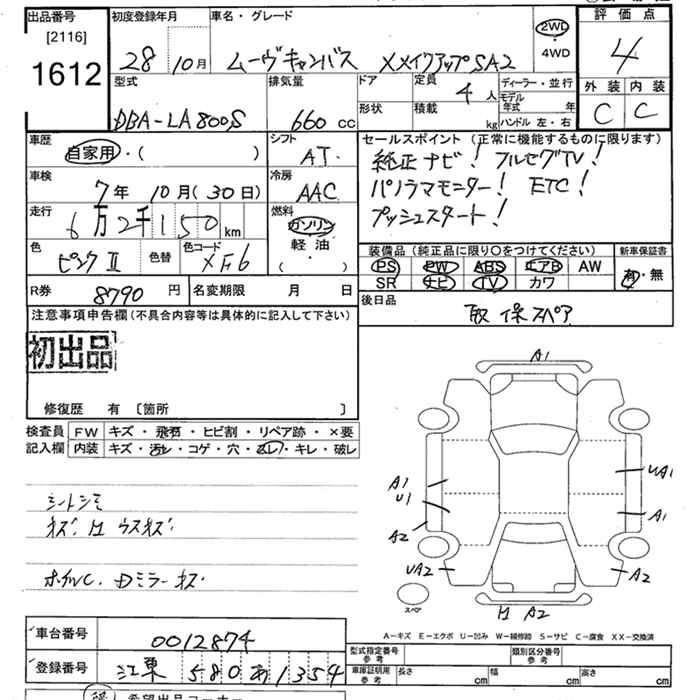 出品番号 初度登録年月 車名・グレード 2WD 評価点
[2116] 28 10月 ムーヴキャンバス XメイクアップSA2 4WD 4
1612 型式 排気量 ドア 定員 4人 ディーラー・並行 外装 内装
DBA-LA800S 660cc 形状 積載 kg モデル年式 年 ハンドル 左・右 C C
車歴 自家用・( ) シフト AT セールスポイント (正常に機能するものに限ります)
車検 7年 10月(30日) 冷房 AAC 純正ナビ! フルセグTV!
走行 6万2千150km 燃料 ガソリン パノラマモニター! ETC!
軽油 プッシュスタート!
色 ピンクII 色替 色コード XF6 (・) 装備品 (純正品に限り○をつけてください) 新車保証書
PS PW ABS エアB AW 有・無
R券 8790円 名変期限 月 日 SR ナビ TV カワ
注意事項申告欄(不具合内容等は具体的に記入して下さい) 後日品
初出品 取 保 スペア
修復歴 有 〔箇所 〕
検査員 FW キズ・飛石・ヒビ割・リペア跡・×要
記入欄 内装 キズ・汚レ・コゲ・穴・スレ・キレ・破レ
シートシミ
キズ ウスキズ
ホイルC. Dミラーキズ
A1
A1
U1
A2
UA2
UA1
A1
A2
A2
スペア
A-キズ E-エクボ U-凹み W-補修跡 S-サビ C-腐食 XX-交換済
車台番号 0012874 型式指定番号 参考 類別区分番号 参考
登録番号 江東 580 あ 1354 車庫証明用 参考 長さ cm 幅 cm 高さ cm
希望出品コーナー